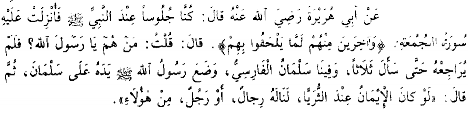 عَنْ أَبِي هُرَيْرَةَ رَضِيَ اللهُ عَنْهُ قَالَ: كُنَّا جُلُوساً عِنْدَ النَّبِيِّ ﷺ فَأُنْزِلَتْ عَلَيْهِ
سُورَةُ الْجُمُعَةِ: ﴿وَآخَرِينَ مِنْهُمْ لَمَّا يَلْحَقُوا بِهِمْ﴾. قَالَ: قُلْتُ: مَنْ هُمْ يَا رَسُولَ اللهِ؟ فَلَمْ
يُرَاجِعْهُ حَتَّى سَأَلَ ثَلَاثاً، وَفِينَا سَلْمَانُ الْفَارِسِيُّ، وَضَعَ رَسُولُ اللهِ ﷺ يَدَهُ عَلَى سَلْمَانَ، ثُمَّ
قَالَ: «لَوْ كَانَ الْإِيْمَانُ عِنْدَ الثُّرَيَّا، لَنَالَهُ رِجَالٌ، أَوْ رَجُلٌ، مِنْ هَؤُلَاءِ».